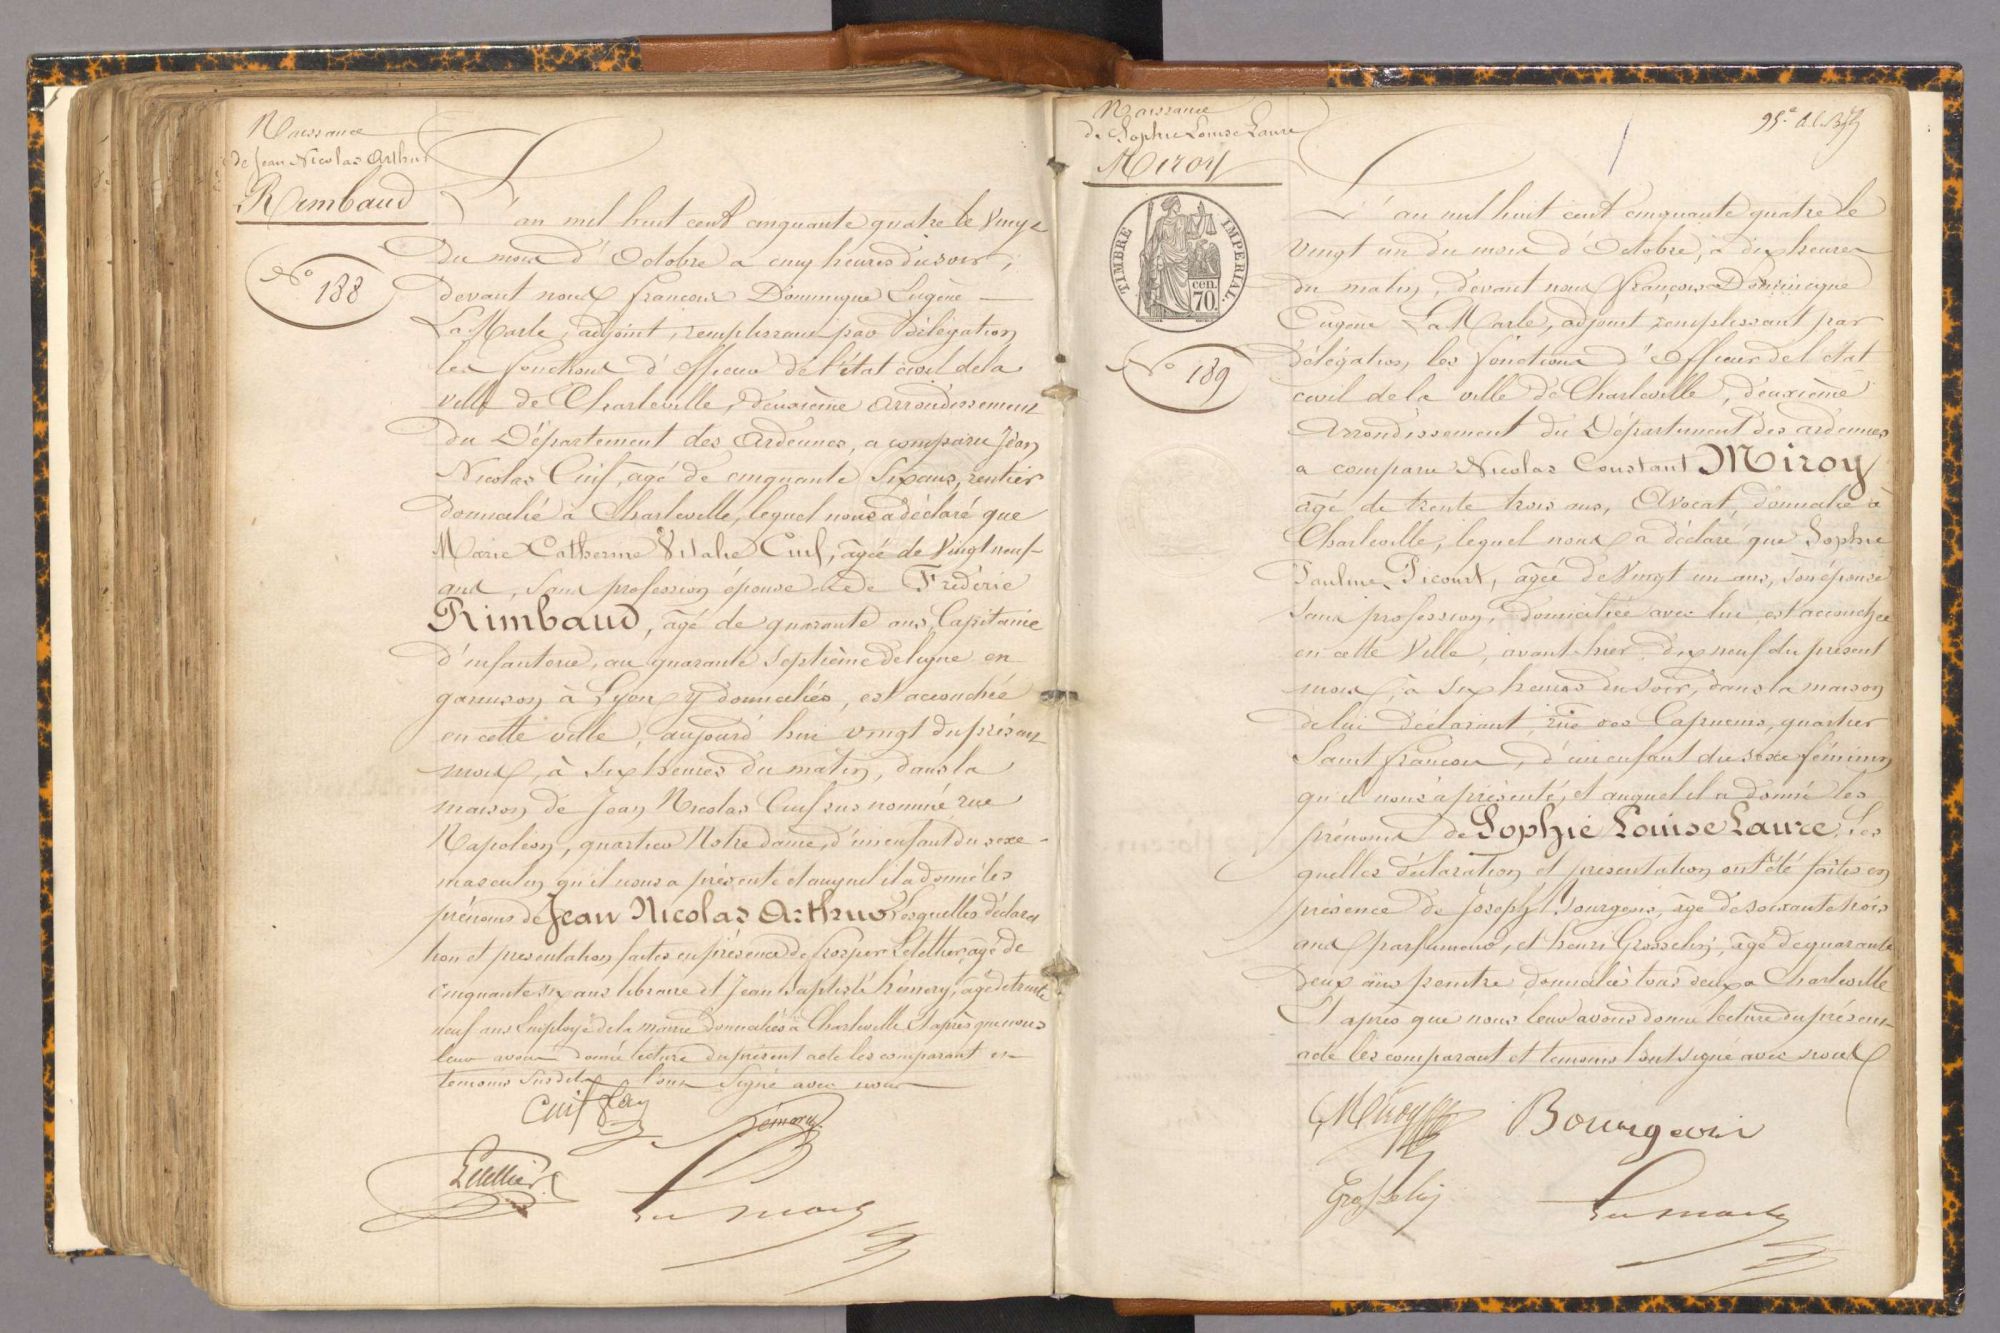 Naissance
de Jean Nicolas Arthur
Rimbaud
N° 188
L'an mil huit cent cinquante quatre le vingt
du mois d'Octobre a cinq heures du soir,
devant nous François Dominique Eugène
La Marle, adjoint, remplissant par délégation
les fonctions d'officier de l'état civil de la
ville de Charleville, deuxième arrondissement
du Département des Ardennes, a comparu Jean
Nicolas Cuif, agé de cinquante six ans, rentier
domicilié à Charleville, lequel nous a déclaré que
Marie Catherine Vitalie Cuif, âgée de vingt neuf
ans, sans profession épouse de Frédéric
Rimbaud, agé de quarante ans, Capitaine
d'infanterie, au quarante septième de ligne en
garnison à Lyon y domiciliés, est accouchée
en cette ville, aujourd'hui vingt du présent
mois, à six heures du matin, dans la
maison de Jean Nicolas Cuif sus nommé, rue
Napoléon, quartier Notre dame, d'un enfant du sexe
masculin qu'il nous a présenté et auquel il a donné les
prénoms de Jean Nicolas Arthur, Lesquelles déclara
tion et présentation faites en présence de Prosper Letellier, agé de
cinquante six ans libraire et Jean Baptiste hémery, agé de trente
neuf ans Employé de la mairie domiciliés à Charleville. Et après que nous
leur avons donné lecture du présent acte les comparant et
temoins susdits l'ont signé avec nous
Cuif
hémery
Letellier
La Marle
Naissance
de Sophie Louise Laure
Miroy
TIMBRE IMPERIAL.
70 cen.
N° 189
95e
L'an mil huit cent cinquante quatre le
vingt un du mois d'Octobre, à dix heures
du matin, devant nous François Dominique
Eugène La Marle, adjoint, remplissant par
délégation, les fonctions d'officier de l'état
civil de la ville de Charleville, deuxième
Arrondissement du Département des ardennes
a comparu Nicolas Constant Miroy
âgé de trente trois ans, Avocat, domicilié à
Charleville, lequel nous a déclaré que Sophie
Pauline Picourt, âgée de vingt un ans, son épouse
sans profession, domiciliée avec lui, est accouchée
en cette ville, avant hier, dix neuf du présent
mois, à six heures du soir, dans la maison
de lui déclarant, rue des Capucins, quartier
Saint François, d'un enfant du sexe féminin
qu'il nous a présenté, et auquel il a donné les
prénoms de Sophie Louise Laure. Les
quelles déclaration et présentation ont été faites en
présence de Joseph Bourgeois, âgé de soixante trois
ans parfumeur, et henri Grosselin, âgé de quarante
deux ans peintre domiciliés tous deux a Charleville
Et après que nous leur avons donné lecture du présent
acte les comparant et temoins l'ont signé avec nous
CMiroy
Bourgeois
Grosselin
La Marle